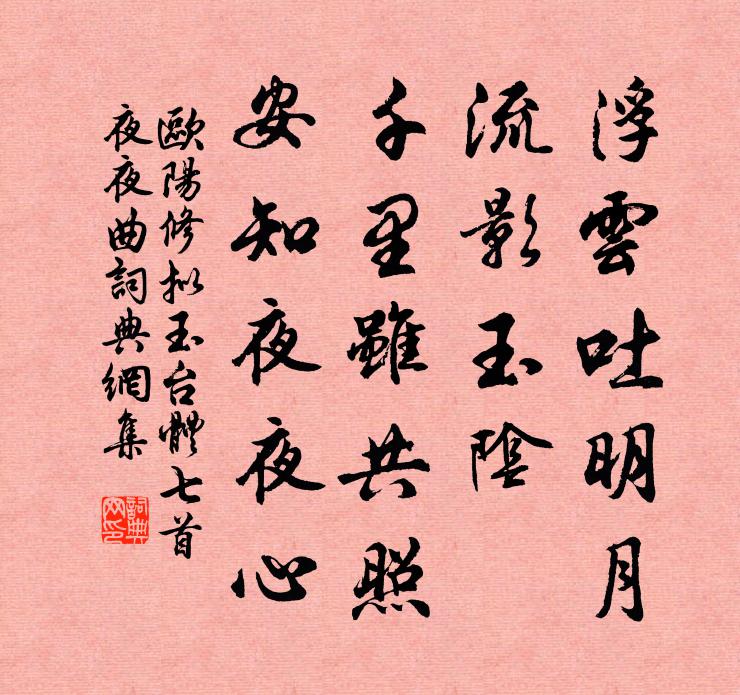 浮雲吐明月
流影玉陰
千里雖共照
安知夜夜心
歐陽修擬玉台體七首
夜夜曲詞典網集
詞典
网印